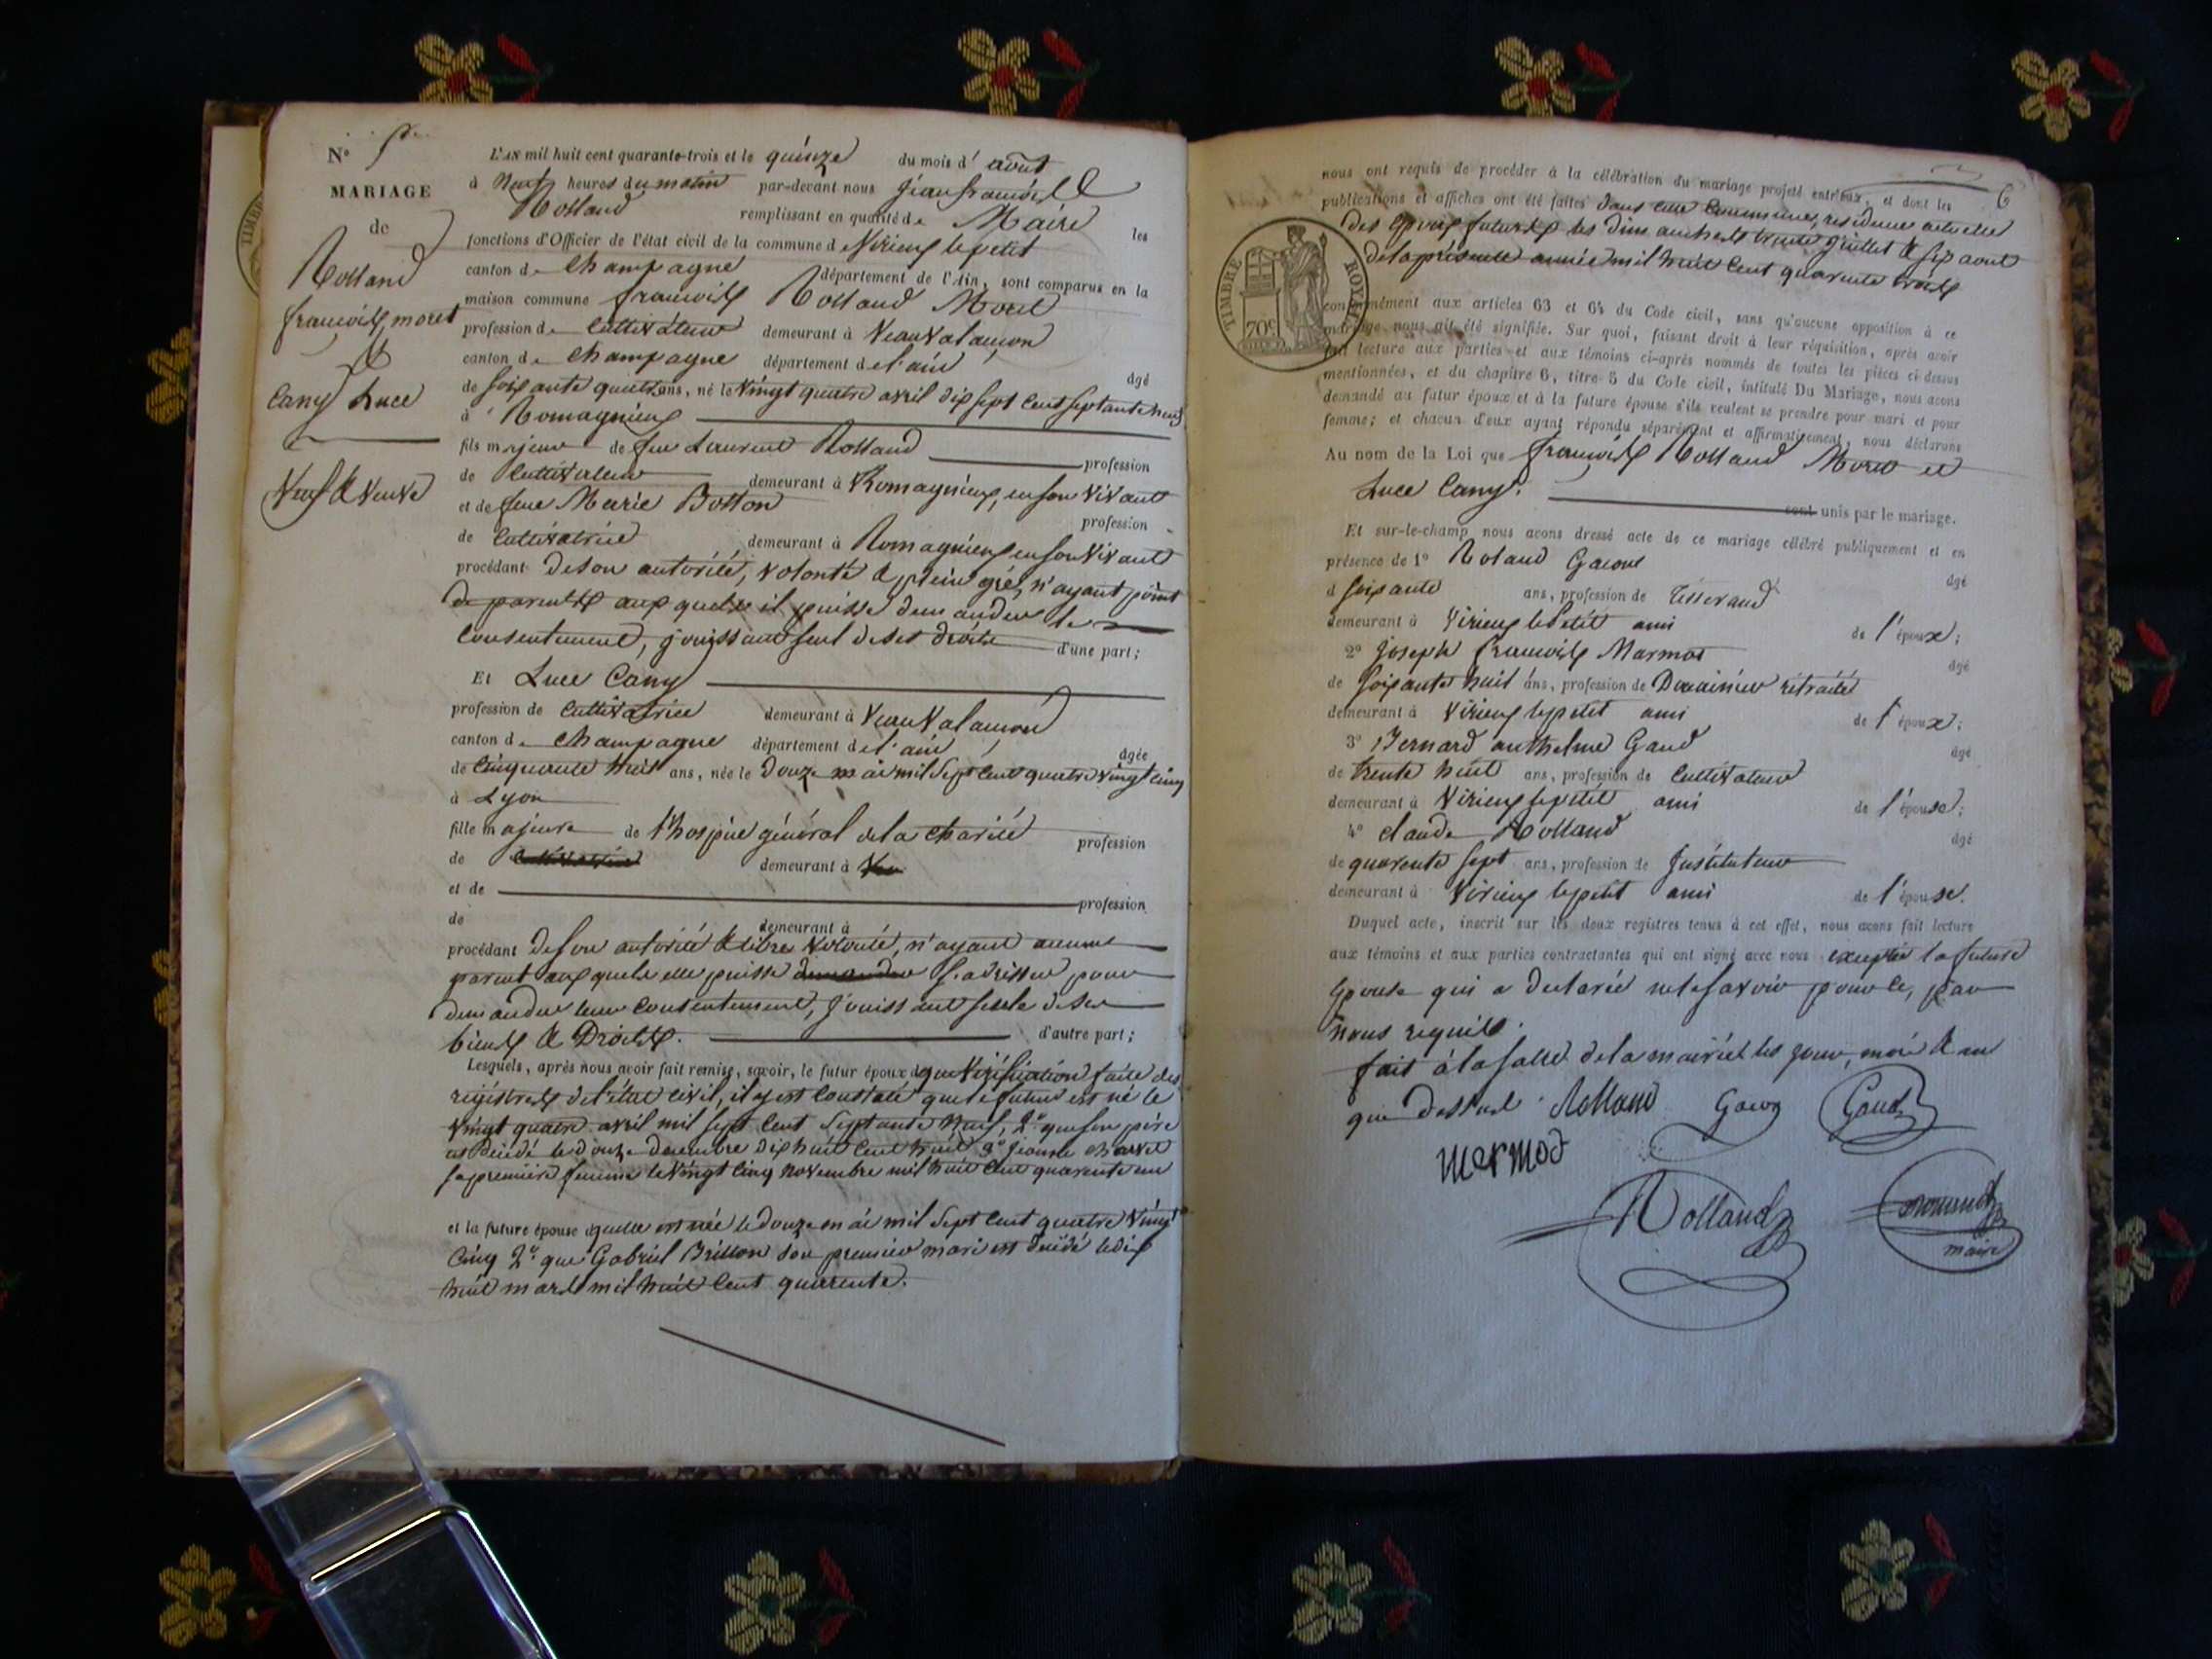 N°
MARIAGE
de
Rolland
françois moret
&
Cany Luce
Veuf & Veuve
TIMBRE
L'AN mil huit cent quarante-trois et le quinze du mois d' août
à Neuf heures du matin par-devant nous Jean françois
Rolland remplissant en qualité de Maire les
fonctions d'Officier de l'état civil de la commune de Virieux le petit
canton de Champagne département de l'Ain, sont comparus en la
maison commune françois Rolland Moret
profession de Cultivateur demeurant à
canton de Champagne département de l'ain
âgé
de soixante quatre ans, né le vingt quatre avril dix sept cent septante neuf
à Romagnieux
fils majeur de feu Laurent Rolland profession
de Cultivateur demeurant à Romagnieux, en son vivant
et de feue Marie Botton profession
de Cultivatrice demeurant à Romagnieux en son vivant
procédant de son autorité, volonté & plein gré, n'ayant point
de parents auxquels il puisse demander le
consentement, jouissant seul de ses droits d'une part;
Et Luce Cany
profession de Cultivatrice demeurant à
canton de Champagne département de l'ain
âgée
de Cinquante huit ans, née le Douze mai mil sept cent quatre vingt cinq
à Lyon
fille majeure de l'hospice général de la charité profession
de demeurant à
et de profession
de demeurant à
procédant de son autorité & libre volonté, n'ayant aucuns
parent auxquels elle puisse demander s'adresser pour
demander leur consentement, jouissant seule de ses
biens & Droits. d'autre part;
Lesquels, après nous avoir fait remise, savoir, le futur époux que vérification faite des
régistres de l'état civil, il y est constaté que le futur est né le
vingt quatre avril mil sept cent septante neuf, 2° que son père
est décédé le douze décembre dix huit cent huit 3° Jeanne charvet
sa première femme le vingt cinq novembre mil huit cent quarante un
et la future épouse quelle est née le douze mai mil sept cent quatre vingt
cinq 2° que Gabriel Brillon son premier mari est décédé le dix
huit mars mil huit cent quarante.
6
nous ont requis de procéder à la célébration du mariage projeté entr'eux, et dont les
publications et affiches ont été faites dans cette Commune, résidence actuelle
des époux futurs les dimanches trente juillet & six aout
de la présente année mil huit cent quarante trois
TIMBRE ROYAL
70c
conformément aux articles 63 et 64 du Code civil, sans qu'aucune opposition à ce
mariage nous ait été signifiée. Sur quoi, faisant droit à leur réquisition, après avoir
fait lecture aux parties et aux témoins ci-après nommés de toutes les pièces ci-dessus
mentionnées, et du chapitre 6, titre 5 du Code civil, intitulé Du Mariage, nous avons
demandé au futur époux et à la future épouse s'ils veulent se prendre pour mari et pour
femme; et chacun d'eux ayant répondu séparément et affirmativement, nous déclarons
Au nom de la Loi que françois Rolland Moret et
Luce Cany.
sont unis par le mariage.
Et sur-le-champ nous avons dressé acte de ce mariage célébré publiquement et en
présence de 1° Roland Gacon
âgé
d soixante ans, profession de Tisserand
demeurant à Virieux le petit ami de l'époux;
2° Joseph François Marmod
âgé
de soixante huit ans, profession de Douanier retraité
demeurant à Virieux le petit ami de l'époux;
3° Bernard anthelme Gaud
âgé
de trente huit ans, profession de Cultivateur
demeurant à Virieux le petit ami de l'épouse;
4° Claude Rolland
âgé
de quarente sept ans, profession de Instituteur
demeurant à Virieux le petit ami de l'épouse.
Duquel acte, inscrit sur les deux registres tenus à cet effet, nous avons fait lecture
aux témoins et aux parties contractantes qui ont signé avec nous exceptée la future
épouse qui a déclaré ne le savoir pour ce, par
nous requis.
fait à la salle de la mairie les jour, mois & an
que dessus. Rolland Gacon Gaud
mermod
Rolland
maire